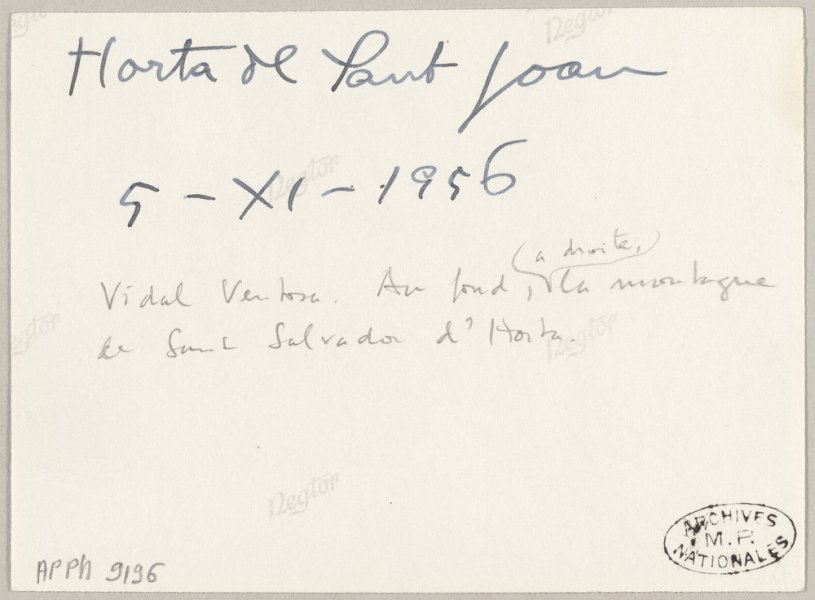 Horta de Sant Joan
5 - XI - 1956
(a droite,)
Vidal Ventosa. Au fond, la montagne
de Sant Salvador d'Horta.
Negtor
Negtor
Negtor
Negtor
Negtor
APPh 9196
ARCHIVES
M.P.
NATIONALES